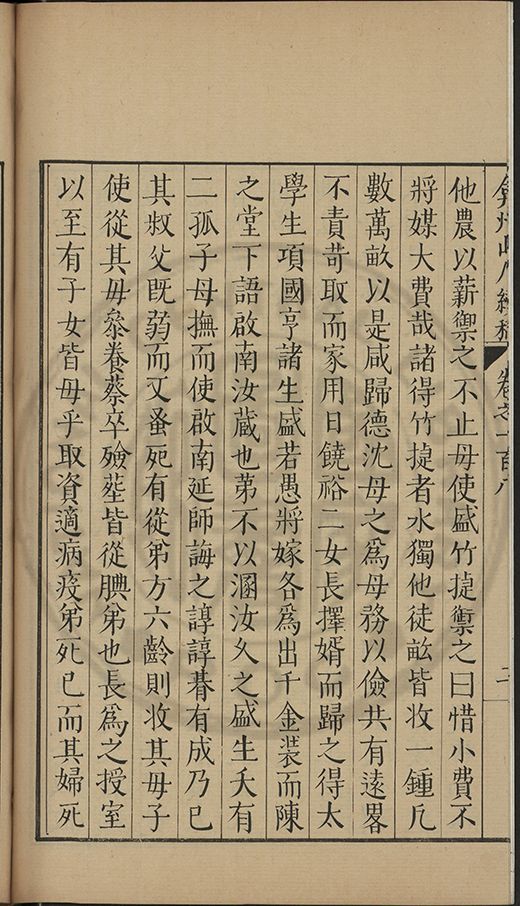 弇州山人續稿 卷之一百八 二
他農以薪禦之不止毋使盛竹揵禦之曰惜小費不
將媒大費哉諸得竹揵者水獨他徙畝皆收一鍾凡
數萬畝以是咸歸德沈母之爲母務以儉共有遠畧
不責苛取而家用日饒裕二女長擇婿而歸之得太
學生項國亨諸生盛若愚將嫁各爲出千金裝而陳
之堂下語啟南汝蔵也苐不以溷汝久之盛生夭有
二孤子母撫而使啟南延師誨之諄諄朞有成乃已
其叔父旣蒻而又蚤死有從弟方六齡則收其毋子
使從其毋叅養蔡卒殮塟皆從腆弟也長爲之授室
以至有子女皆毋乎取資適病疫弟死已而其婦死